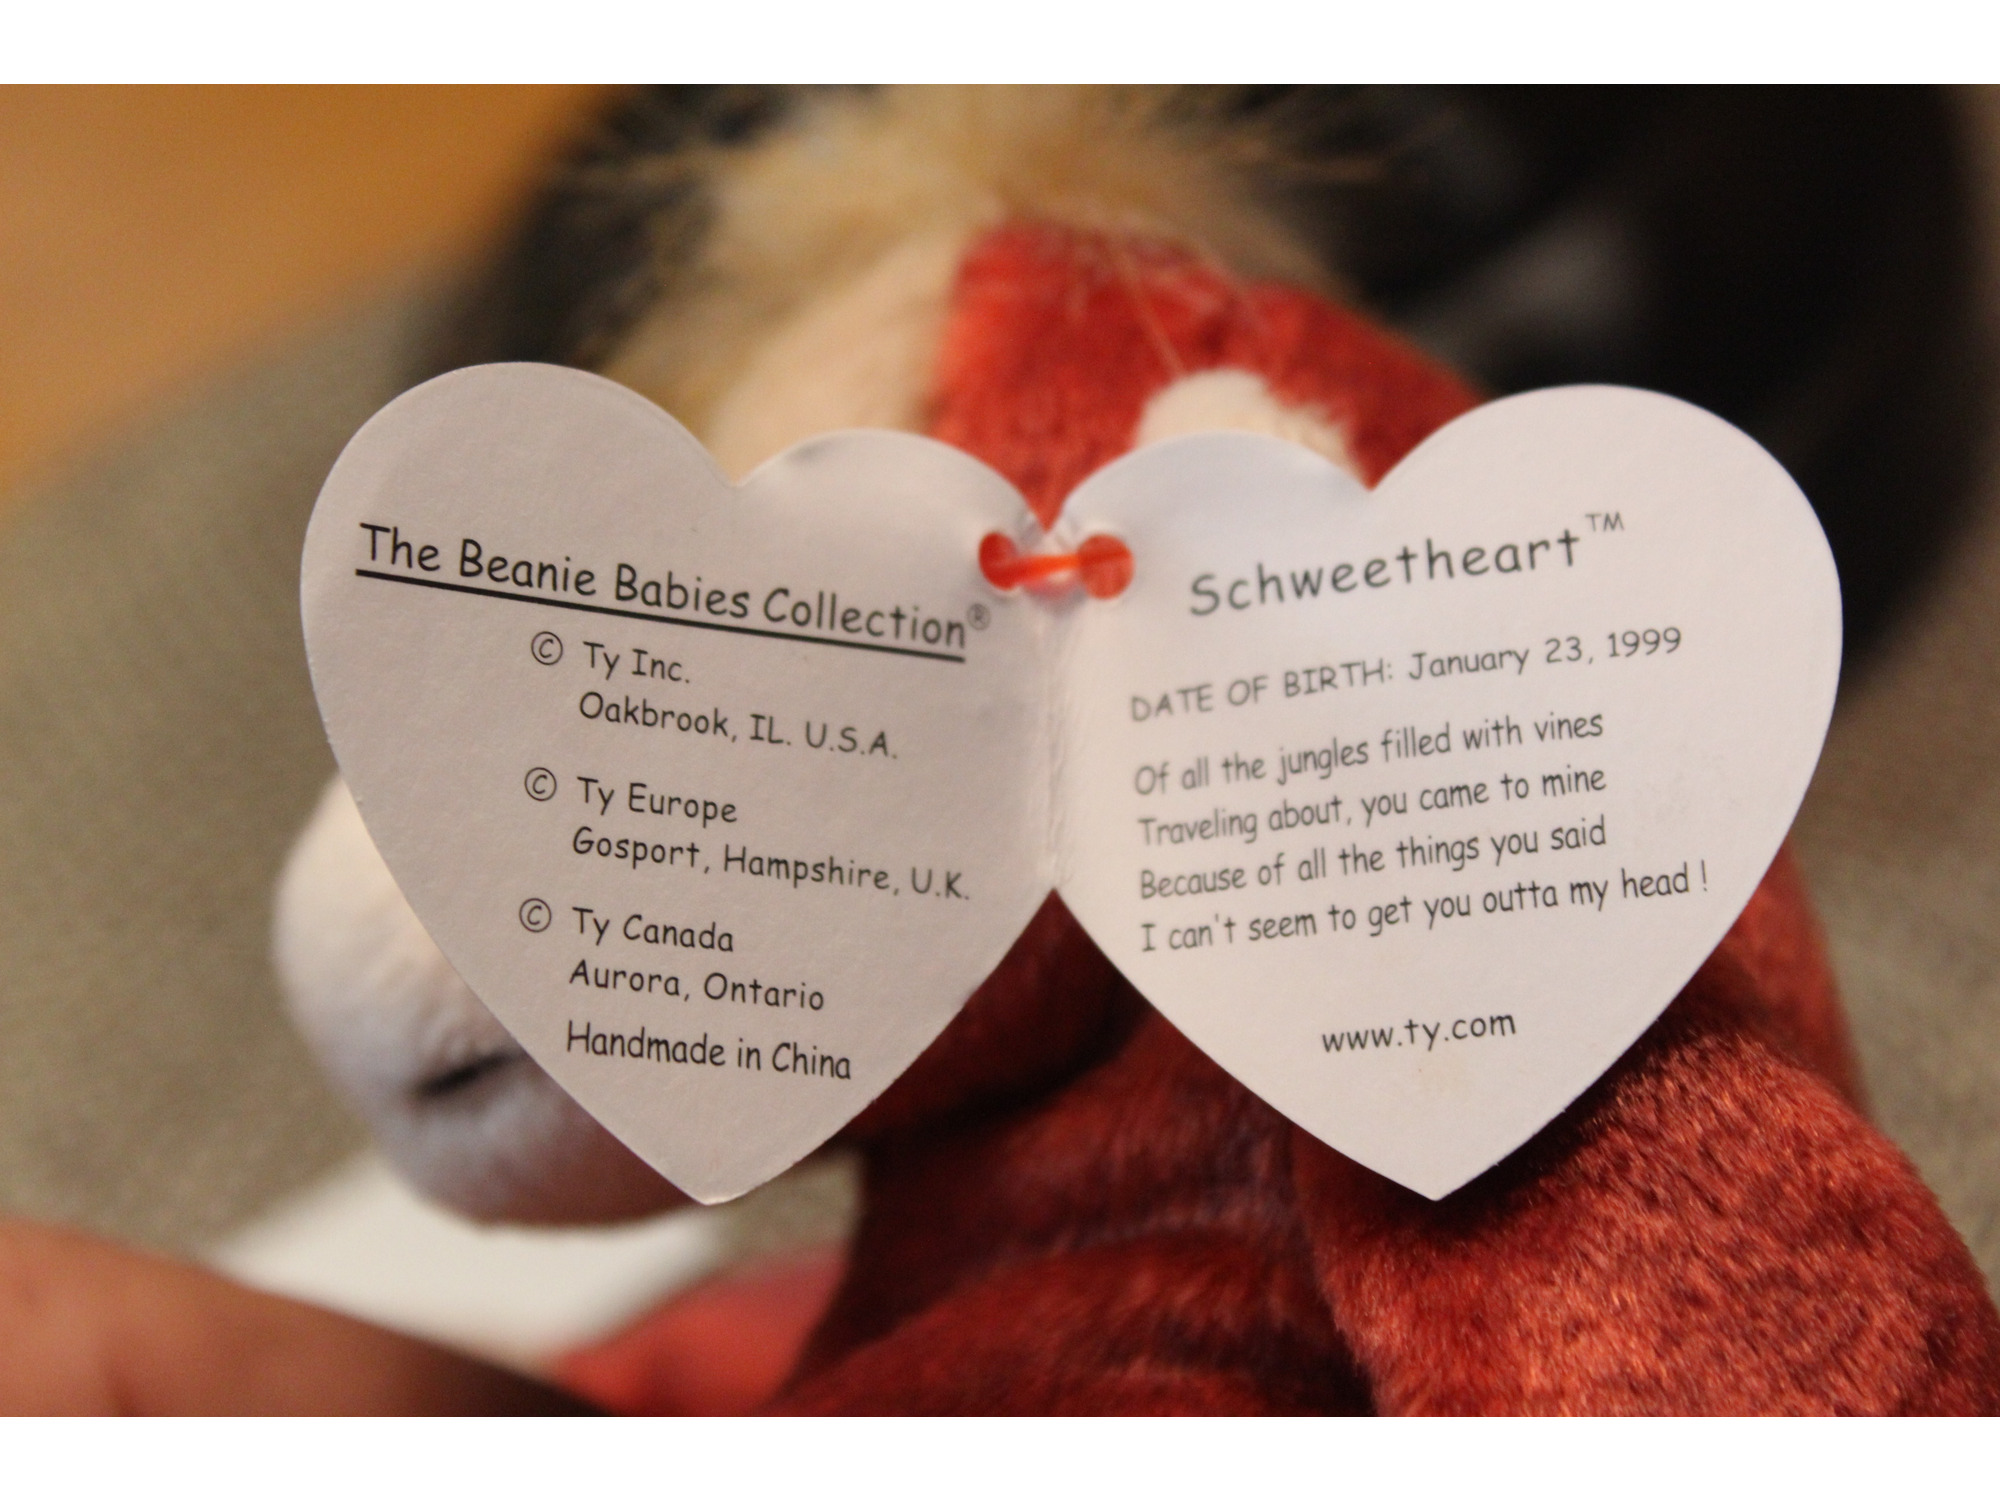 The Beanie Babies Collection®
© Ty Inc.
Oakbrook, IL. U.S.A.
© Ty Europe
Gosport, Hampshire, U.K.
© Ty Canada
Aurora, Ontario
Handmade in China
Schweetheart™
DATE OF BIRTH: January 23, 1999
Of all the jungles filled with vines
Traveling about, you came to mine
Because of all the things you said
I can't seem to get you outta my head !
www.ty.com